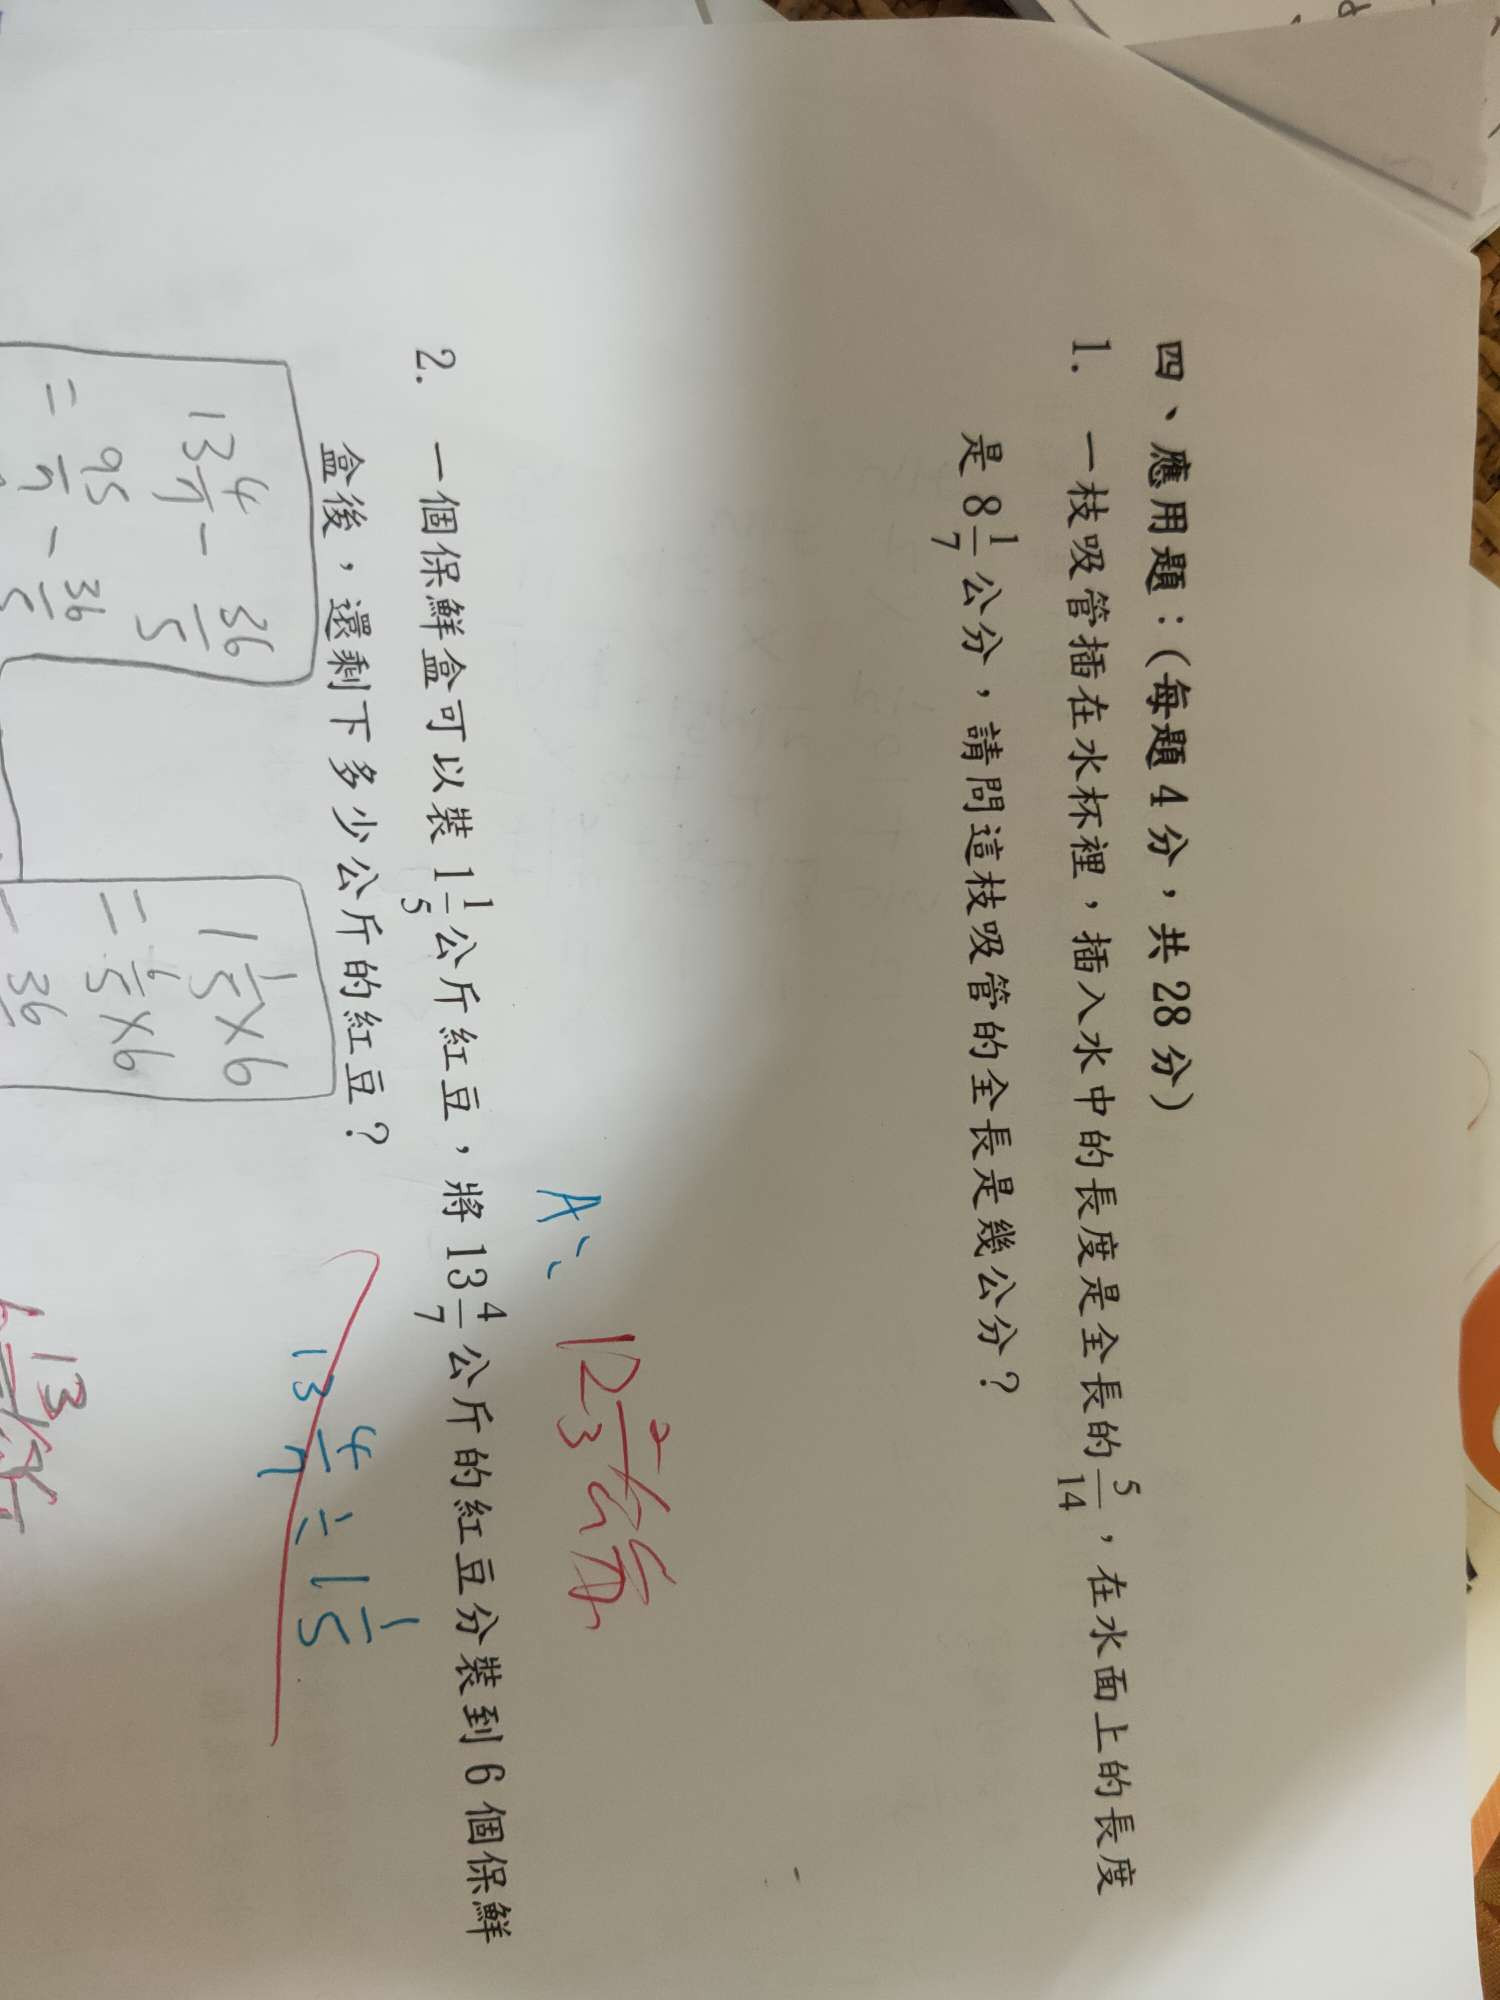 四、應用題：(每題4分，共28分)
1. 一枝吸管插在水杯裡，插入水中的長度是全長的 5/14，在水面上的長度
是 8 1/7 公分，請問這枝吸管的全長是幾公分？
A：12 2/3 公分
2. 一個保鮮盒可以裝 1 1/5 公斤紅豆，將 13 4/7 公斤的紅豆分裝到6個保鮮
盒後，還剩下多少公斤的紅豆？
13 4/7 ÷ 1 1/5
13 4/7 - 36/5
= 95/7 - 36/5
1 1/5 × 6
= 6/5 × 6
36
13